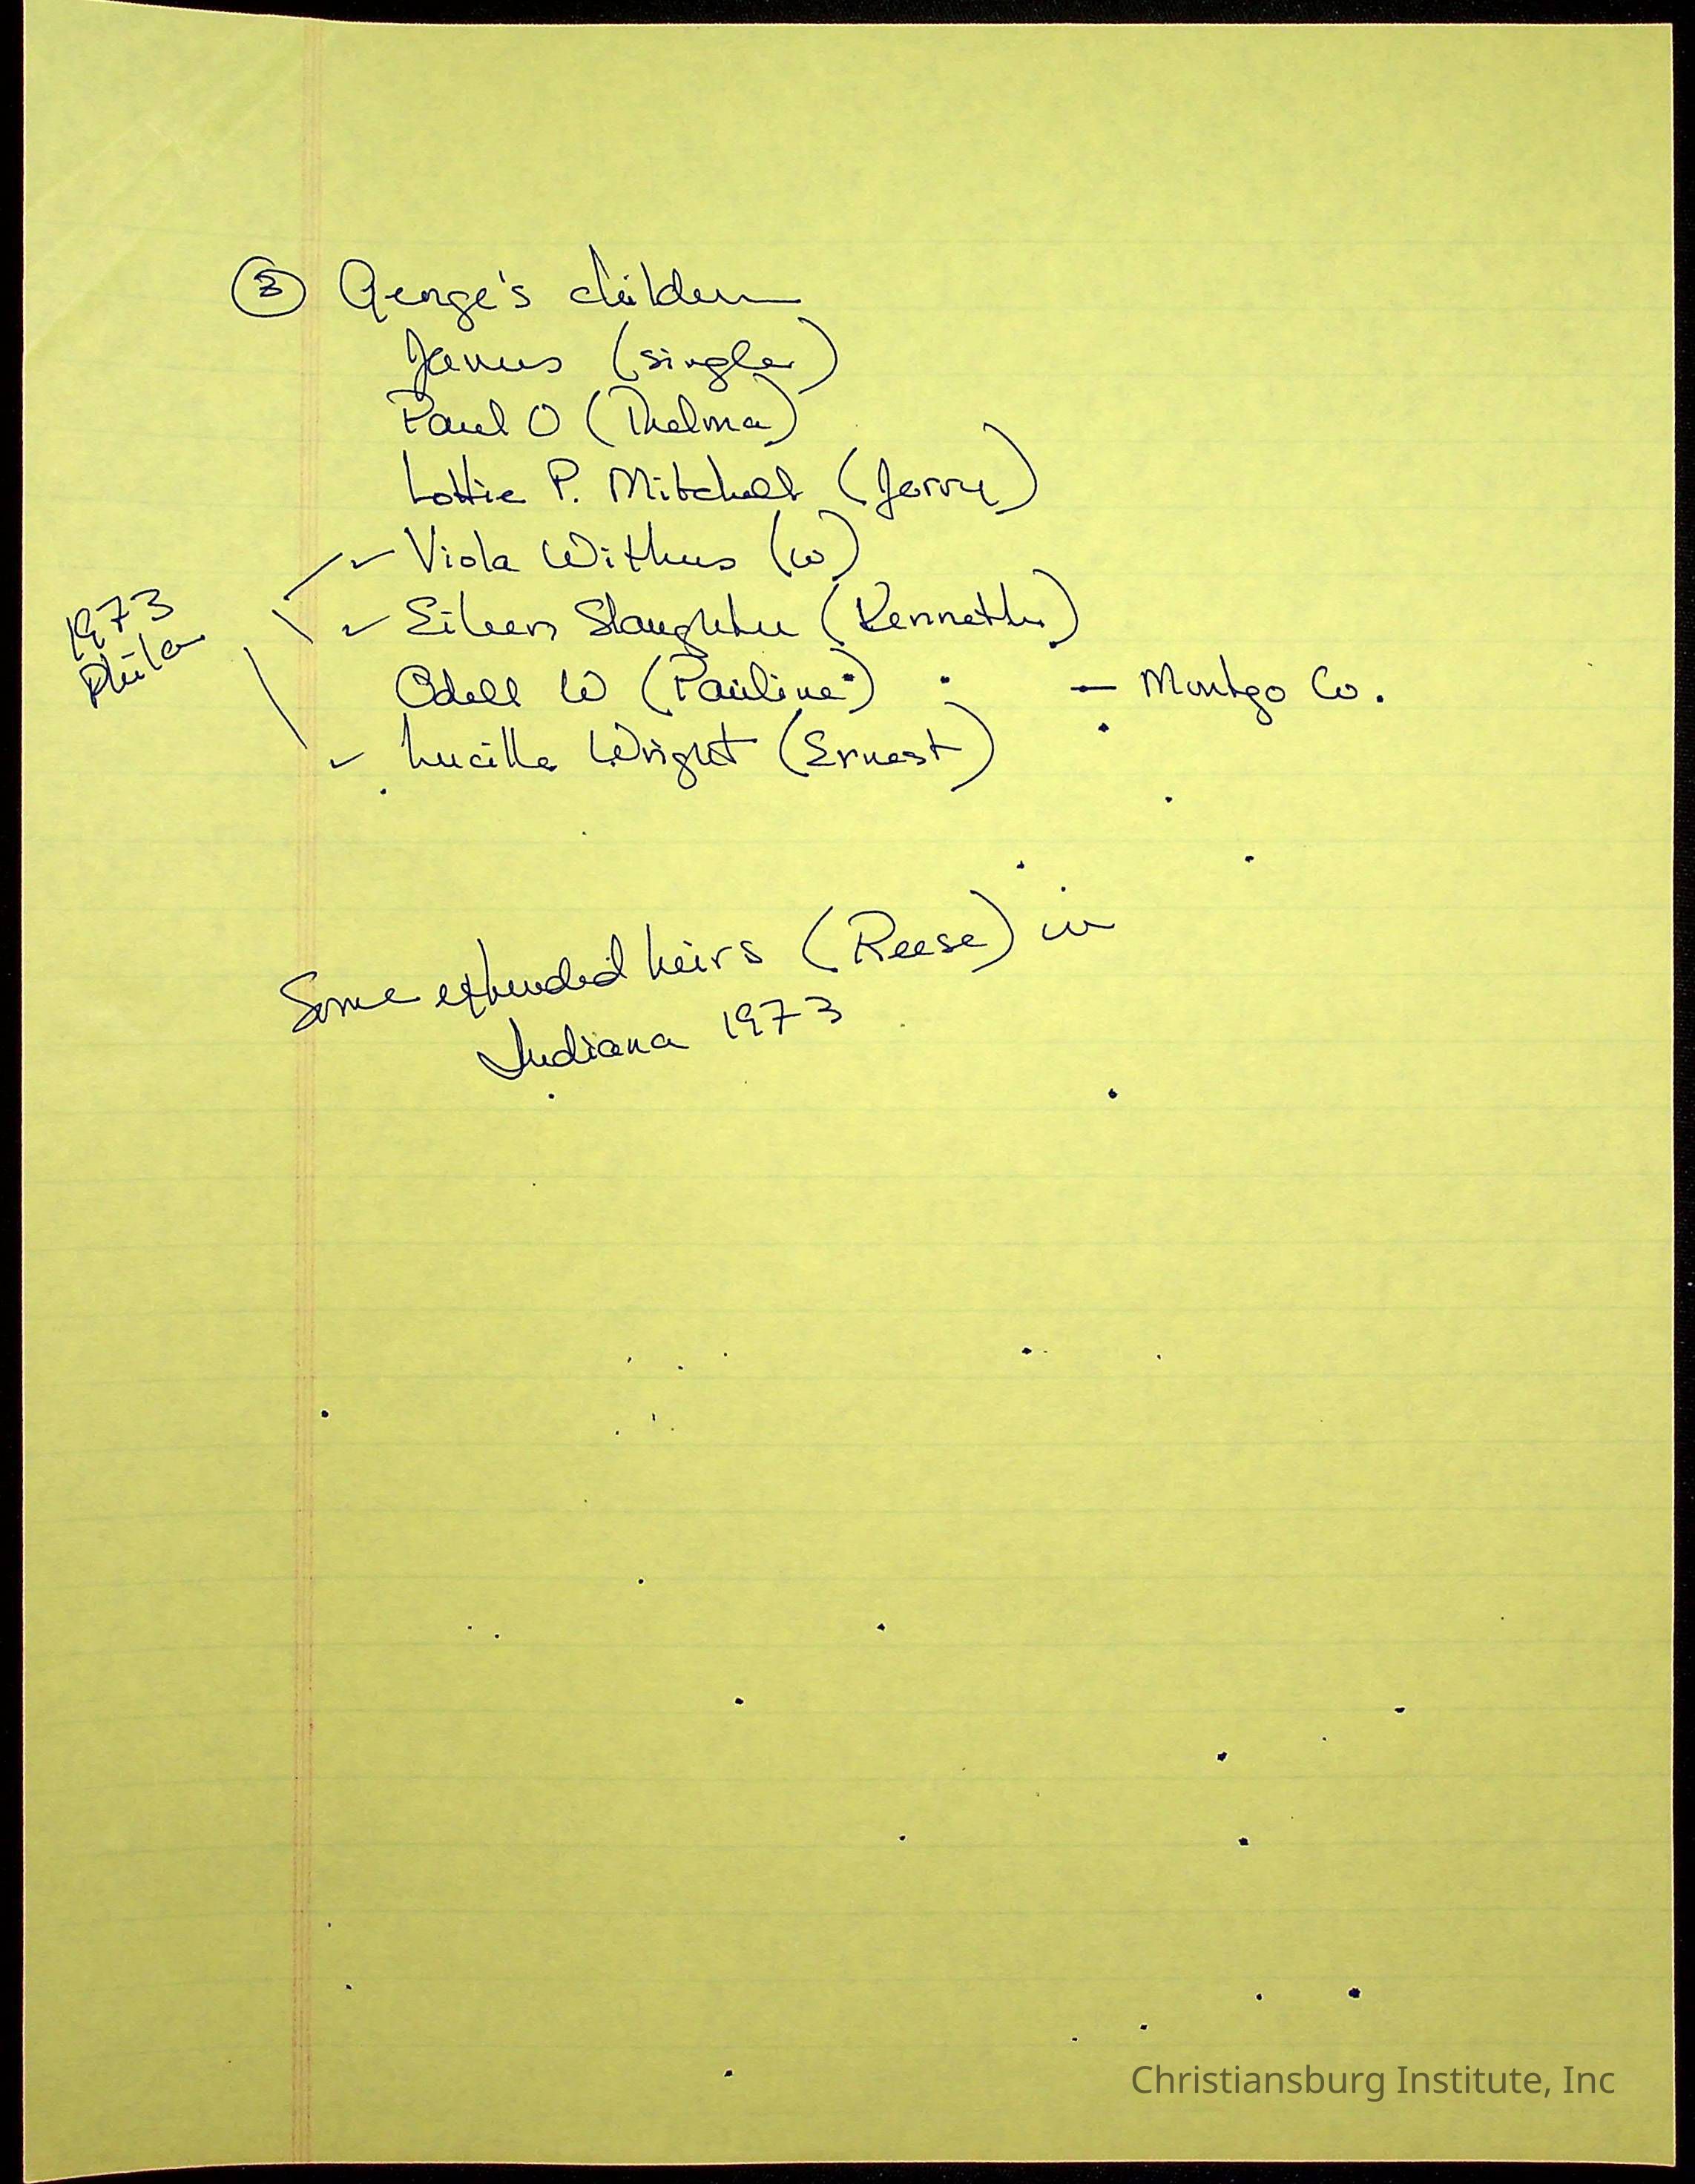 ③ George's children
James (single)
Paul O (Thelma)
Lottie P. Mitchell (Jerry)
✓ Viola Withers (w)
1973
Phila
✓ Eileen Slaughter (Kenneth)
Odell W (Pauline) — Montgo Co.
✓ Lucille Wright (Ernest)
Some extended heirs (Reese) in
Indiana 1973
Christiansburg Institute, Inc